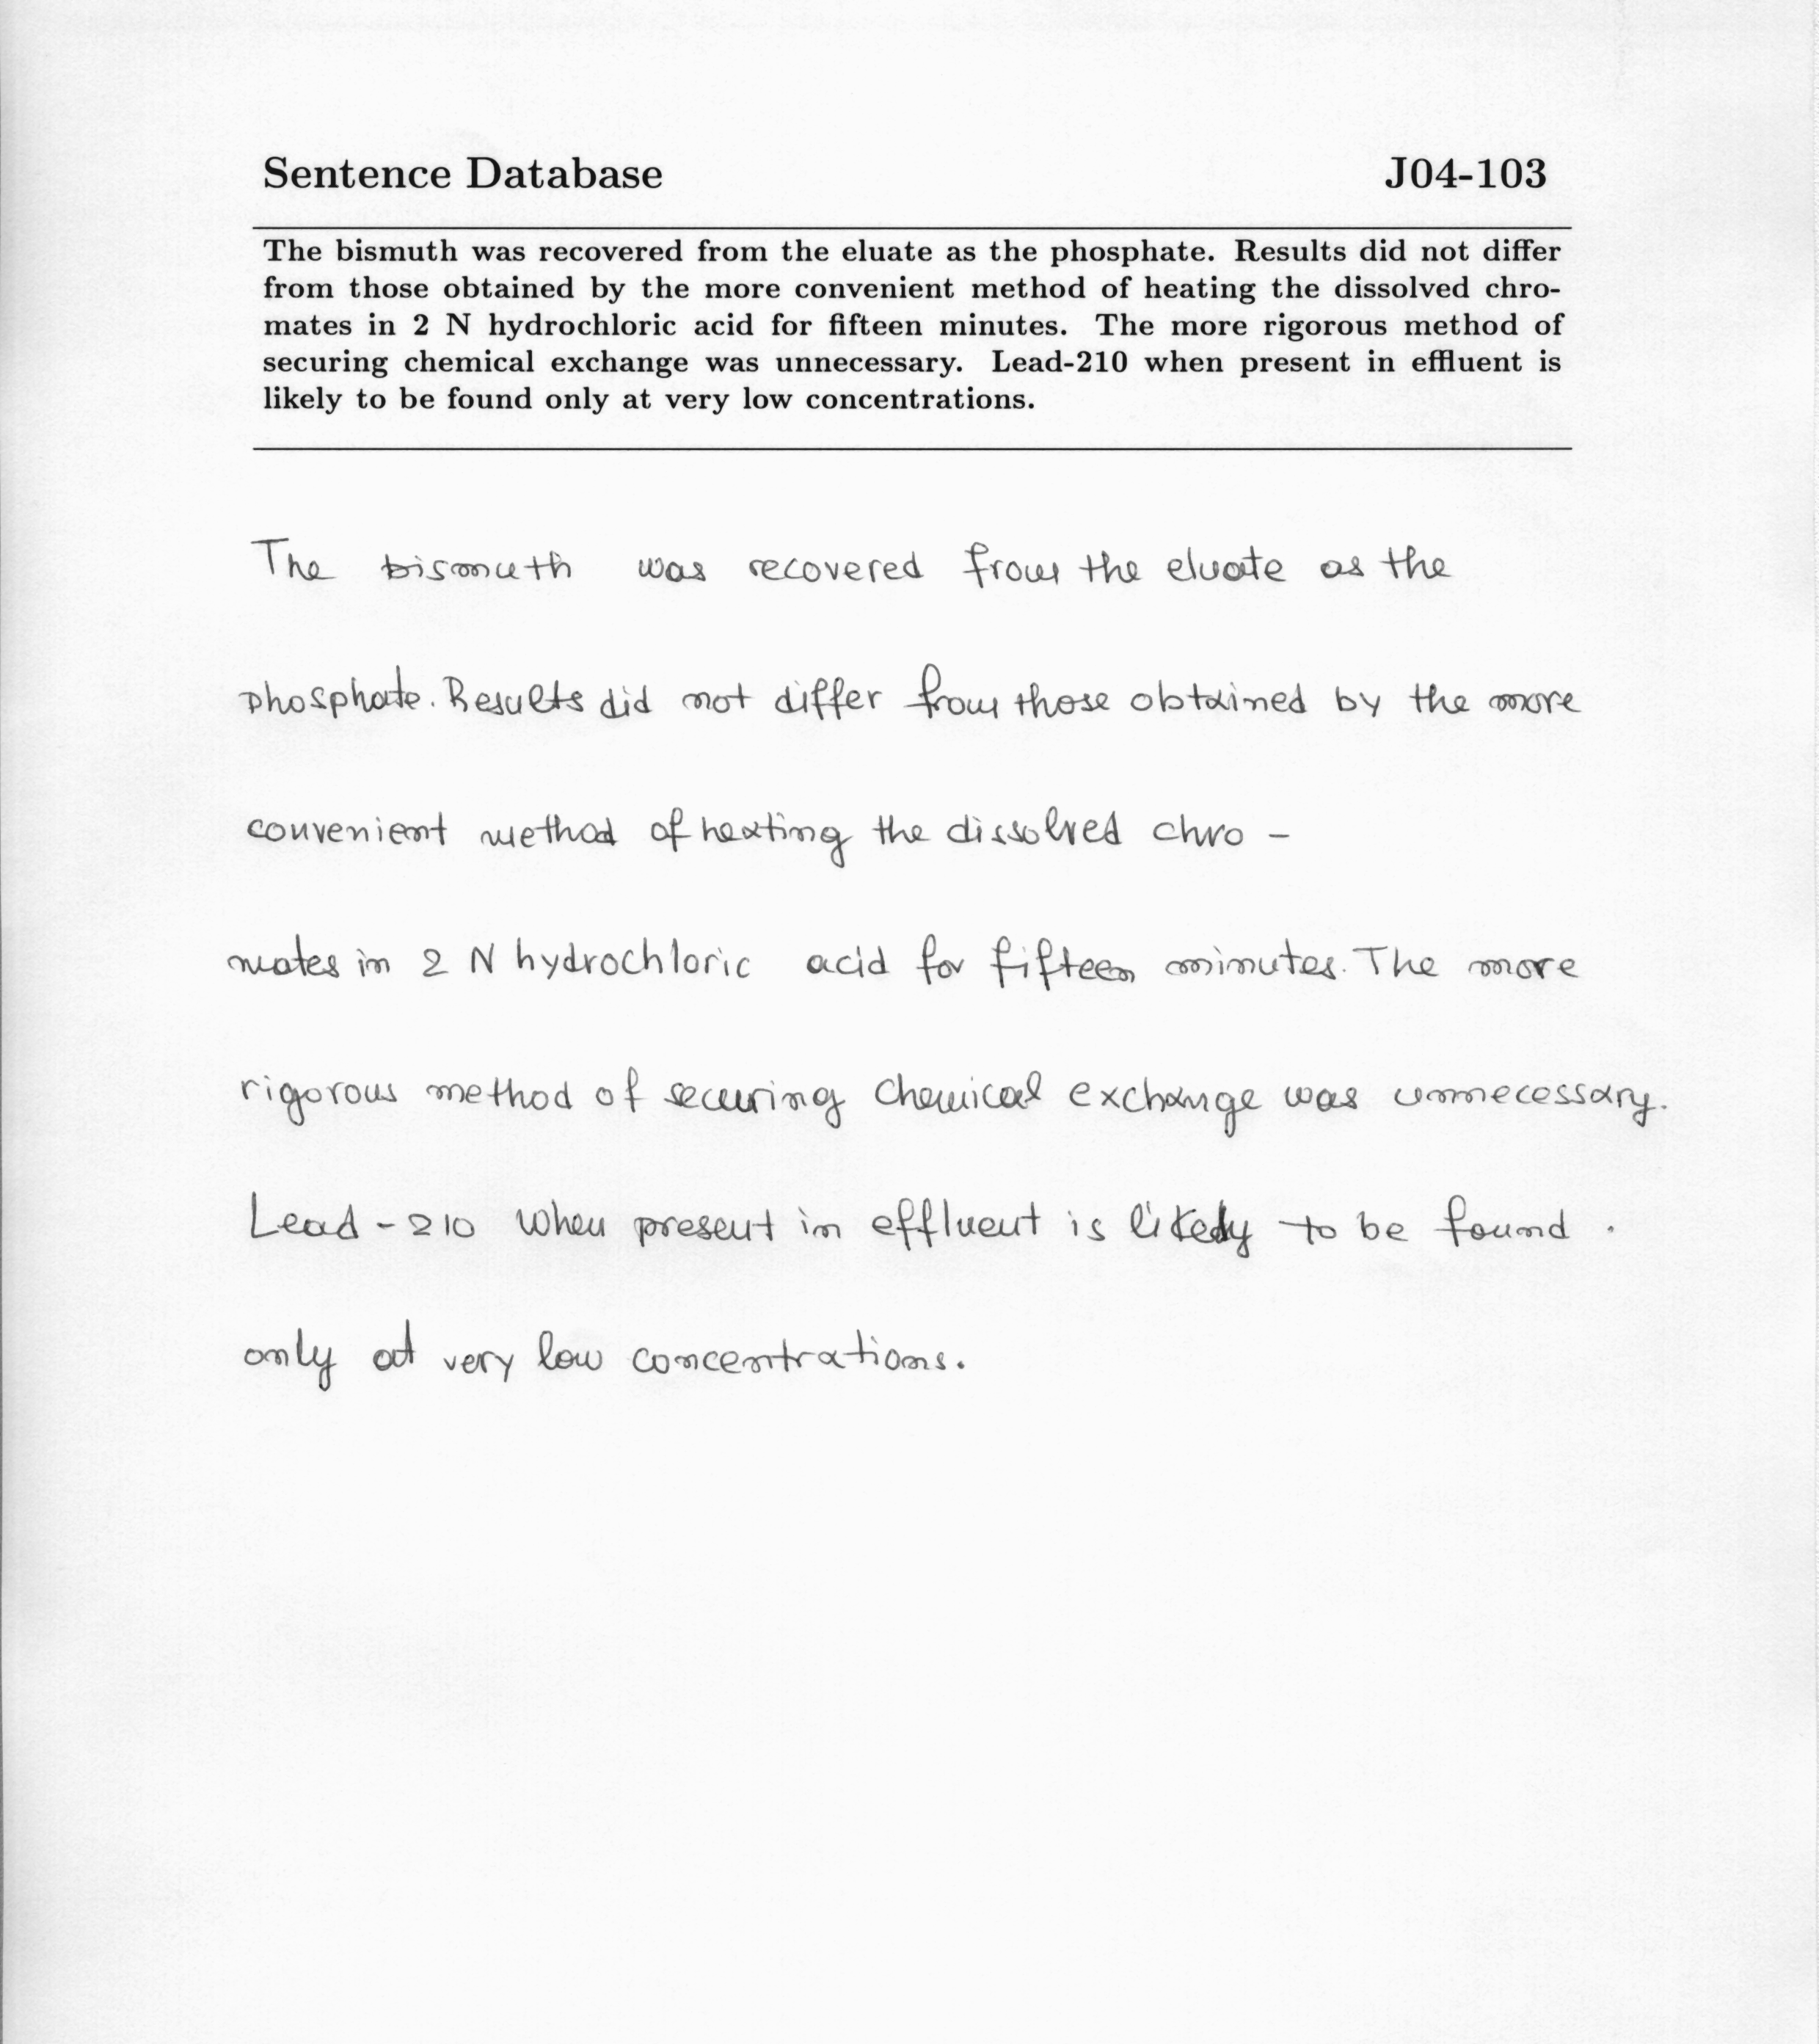 Sentence Database J04-103
The bismuth was recovered from the eluate as the phosphate. Results did not differ
from those obtained by the more convenient method of heating the dissolved chro-
mates in 2 N hydrochloric acid for fifteen minutes. The more rigorous method of
securing chemical exchange was unnecessary. Lead-210 when present in effluent is
likely to be found only at very low concentrations.
The bismuth was recovered from the eluate as the
phosphate. Results did not differ from those obtained by the more
convenient method of heating the dissolved chro -
mates in 2 N hydrochloric acid for fifteen minutes. The more
rigorous method of securing chemical exchange was unnecessary.
Lead - 210 when present in effluent is likely to be found .
only at very low concentrations.